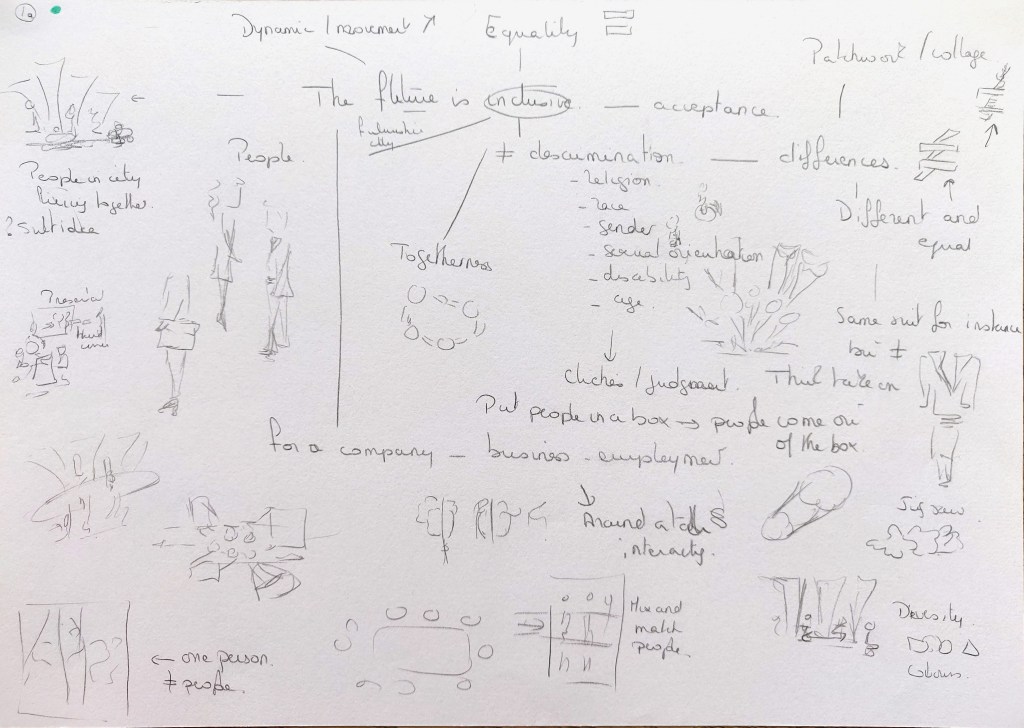 1a
Dynamic / movement ↗
Equality =
Patchwork / collage
← — The future is inclusive — acceptance
≠ descrimination — differences
- religion
- race
- gender
- sexual orientation
- disability
- age
Different and
equal
People
People in city
living together
? Suit idea
Togetherness
Same suit for instance
but ≠
cliches / judgment
Put people in a box → people come out
of the box
for a company – business – employment
Around a table
interacting
Jigsaw
Mix and
match
people
Diversity
colours
← one person
≠ people